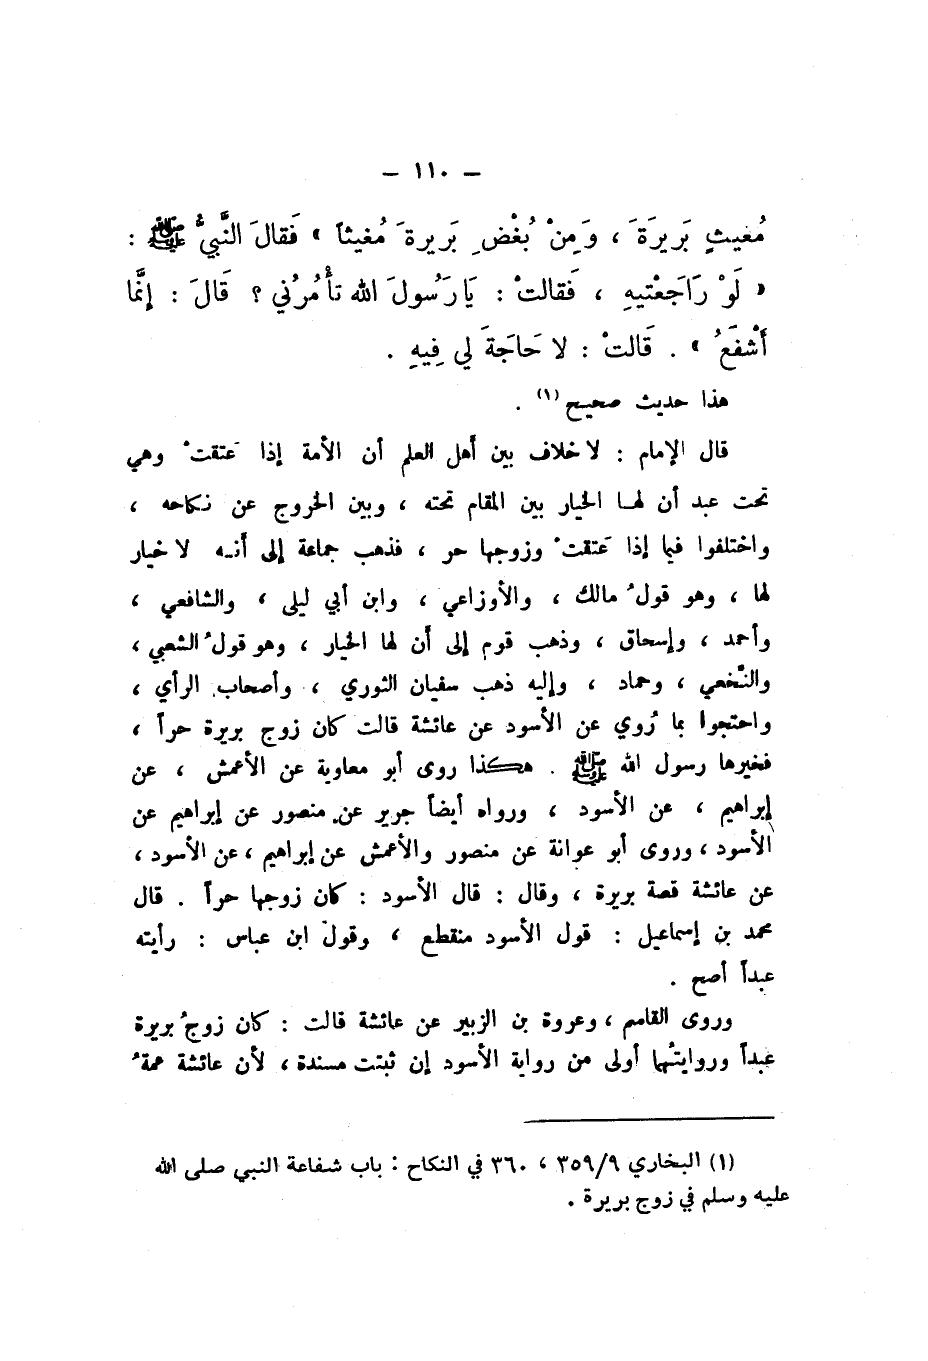 – ١١٠ –
مُغيثٍ بَريرَةَ ، وَمِنْ بُغْضِ بَريرةَ مُغيثاً » فَقالَ النَّبيُّ ﷺ :
« لَوْ رَاجَعْتيهِ ، فَقالتْ : يَا رَسُولَ الله تأْمُرُني ؟ قَالَ : إنَّما
أَشْفَعُ » . قَالتْ : لا حَاجَةَ لي فِيهِ .
هذا حديث صحيح (١) .
قال الإمام : لا خلاف بين أهل العلم أن الأمة إذا عَتقتْ وهي
تحت عبد أن لها الخيار بين المقام تحته ، وبين الخروج عن نكاحه ،
واختلفوا فيما إذا عَتقتْ وزوجها حر ، فذهب جماعة إلى أنه لا خيار
لها ، وهو قولُ مالك ، والأوزاعي ، وابن أبي ليلى ، والشافعي ،
وأحمد ، وإسحاق ، وذهب قوم إلى أن لها الخيار ، وهو قولُ الشعبي ،
والنَّخعي ، وحماد ، وإليه ذهب سفيان الثوري ، وأصحاب الرأي ،
واحتجوا بما رُوي عن الأسود عن عائشة قالت كان زوج بريرة حراً ،
فخيرها رسول الله ﷺ . هكذا روى أبو معاوية عن الأعمش ، عن
إبراهيم ، عن الأسود ، ورواه أيضاً جرير عن منصور عن إبراهيم عن
الأسود ، وروى أبو عوانة عن منصور والأعمش عن إبراهيم ، عن الأسود ،
عن عائشة قصة بريرة ، وقال : قال الأسود : كان زوجها حراً . قال
محمد بن إسماعيل : قول الأسود منقطع ، وقول ابن عباس : رأيته
عبداً أصح .
وروى القاسم ، وعروة بن الزبير عن عائشة قالت : كان زوجُ بريرة
عبداً وروايتُهما أولى من رواية الأسود إن ثبتت مسندة ، لأن عائشة عمةُ
(١) البخاري ٣٥٩/٩ ، ٣٦٠ في النكاح : باب شفاعة النبي صلى الله
عليه وسلم في زوج بريرة .